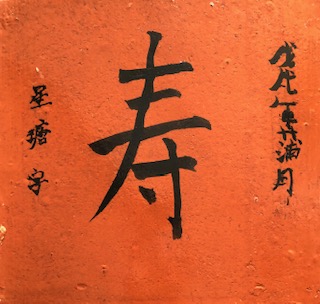 戊戌年蒲月
寿
星瑭字